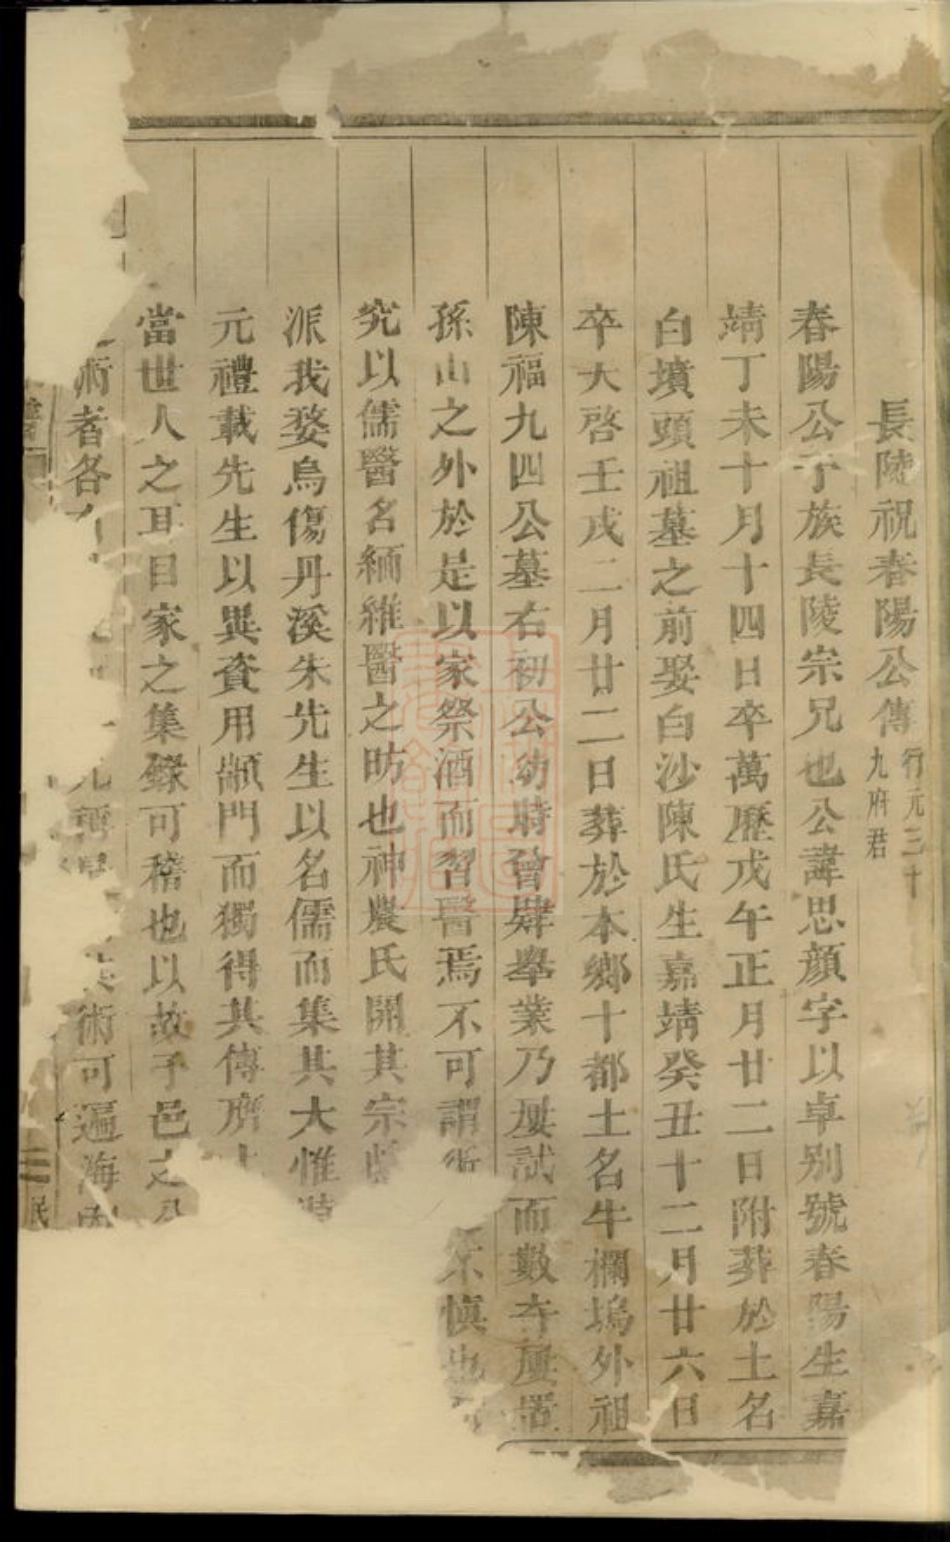 長陵祝春陽公傳 行元三十九府君
春陽公予族長陵宗兄也公諱思顔字以卓别號春陽生嘉
靖丁未十月十四日卒萬歷戊午正月廿二日附葬於土名
白墳頭祖墓之前娶白沙陳氏生嘉靖癸丑十二月廿六日
卒天啓壬戌二月廿二日葬於本鄉十都土名牛欄塢外祖
陳福九四公墓右初公幼時曾肄舉業乃屢試而數奇屢置
孫山之外於是以家祭酒而習醫焉不可謂 慎也
究以儒醫名緬維醫之昉也神農氏開其宗
派我婺烏傷丹溪朱先生以名儒而集其大惟
元禮載先生以異資用顓門而獨得其傳
當世人之耳目家之集錄可稽也以故予邑之
術者各 術可遍海